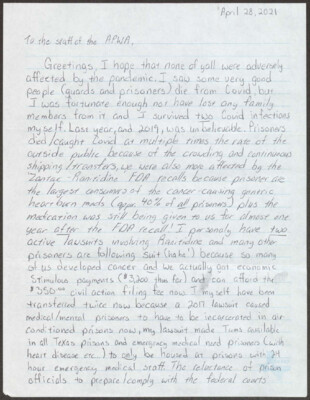 April 28, 2021
To the staff of the APWA,
Greetings, I hope that none of yall were adversely
affected by the pandemic. I saw some very good
people (guards and prisoners) die from Covid, but
I was fortunate enough not have lose any family
members from it and I survived two Covid infections
myself. Last year, and 2019, was unbelievable. Prisoners
died/caught Covid at multiple times the rate of the
outside public because of the crowding and continuous
shipping/transfers, we were also more affected by the
Zantac - Ranitidine FDA recalls because prisons are
the largest consumers of the cancer-causing generic
heartburn meds (appx 40% of all prisoners) plus the
medication was still being given to us for almost one
year after the FDA recall! I personally have two
active lawsuits involving Ranitidine and many other
prisoners are following suit (haha) because so many
of us developed cancer and we actually got economic
stimulous payments ($3200 thus far) and can afford the
$350.00 civil action filing fee now. I myself have been
transferred twice now because a 2017 lawsuit caused
medical/mental prisoners to have to be incarcerated in air
conditioned prisons now, my lawsuit made Tums available
in all Texas prisons and emergency medical need prisoners (with
heart disease etc..) to only be housed at prisons with 24
hour emergency medical staff. The reluctance of prison
officials to prepare/comply with the federal courts